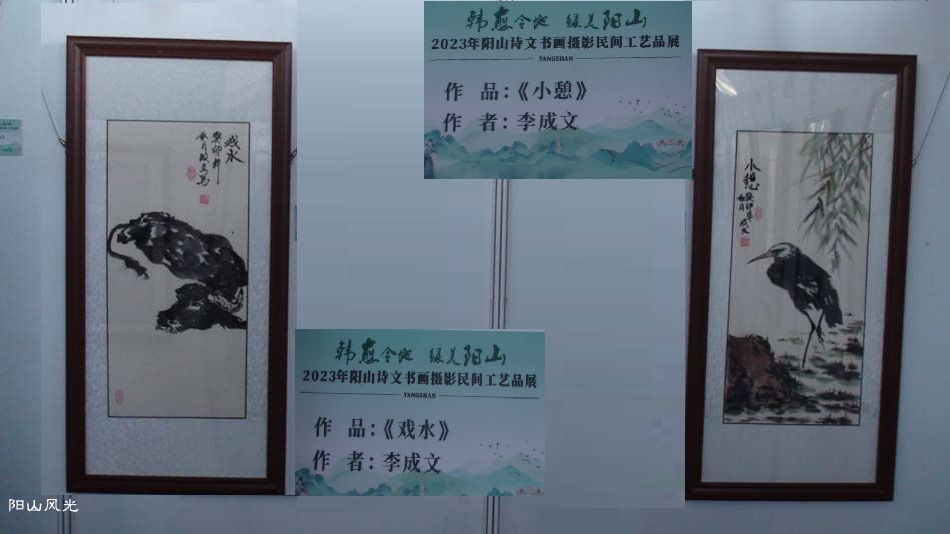 韩愈令地 绿美阳山
2023年阳山诗文书画摄影民间工艺品展
YANGSHAN
作 品：《小憩》
作 者：李成文
戏水
癸卯年
小憩
癸卯年
成文
韩愈令地 绿美阳山
2023年阳山诗文书画摄影民间工艺品展
YANGSHAN
作 品：《戏水》
作 者：李成文
阳山风光